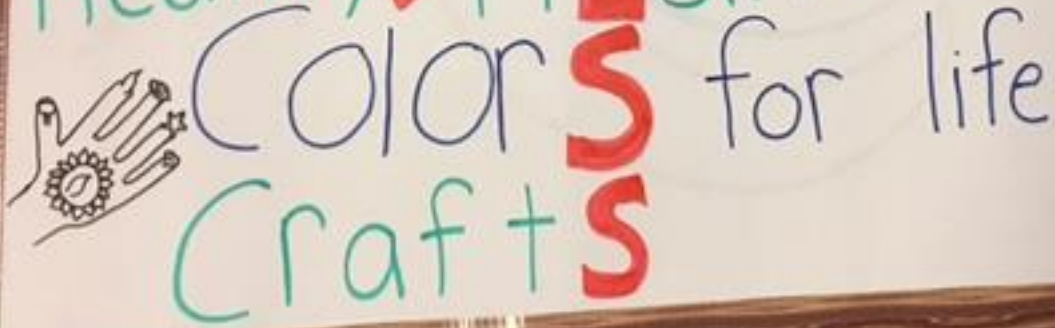 Colors for life
Crafts